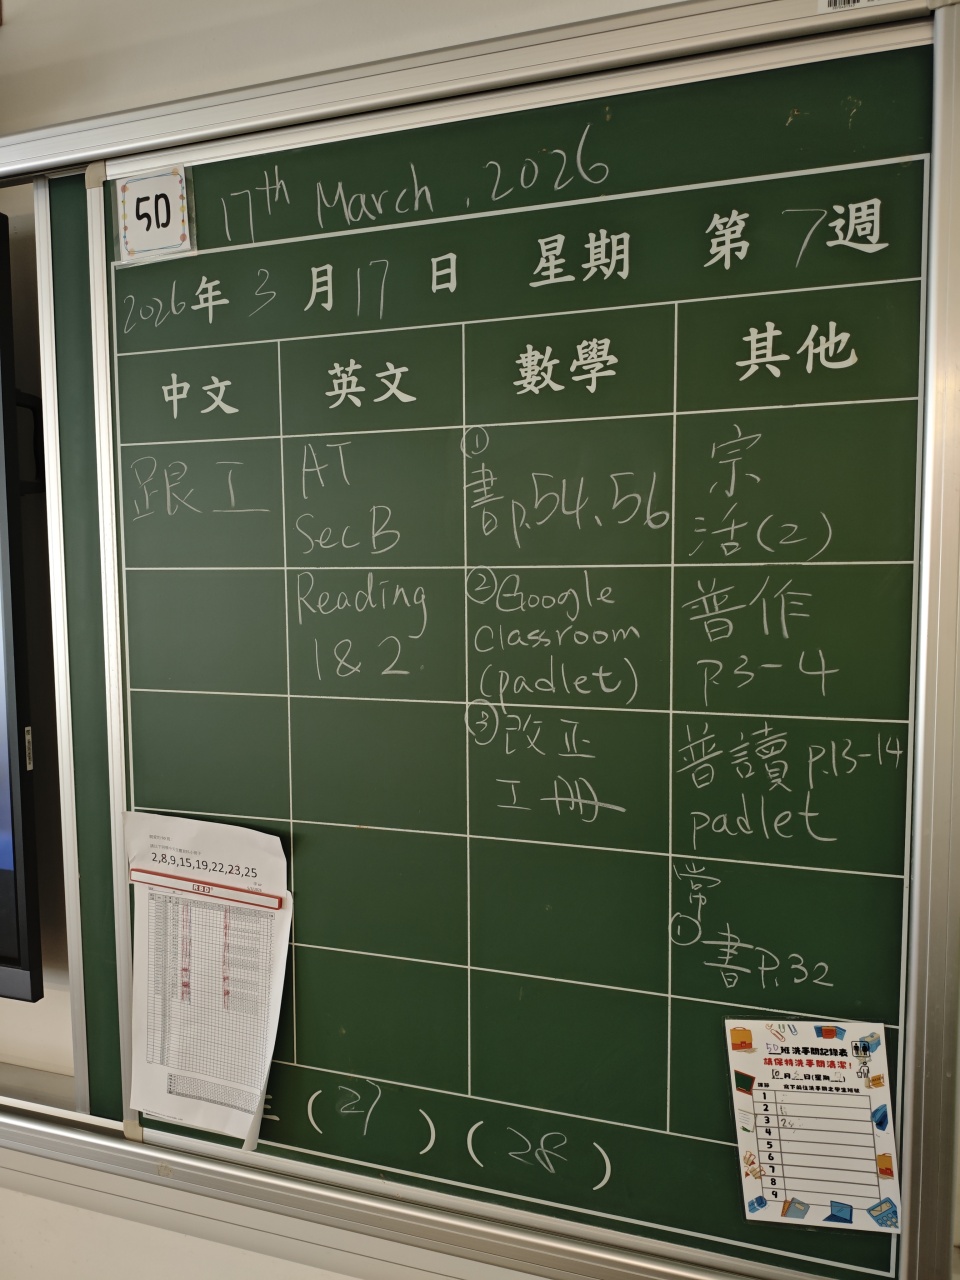 5D
17th March, 2026
2026年3月17日 星期 第7週
中文 英文 數學 其他
跟工
AT
Sec B
Reading
1 & 2
①
書p.54、56
②Google
Classroom
(padlet)
③改正
工冊
宗
活(2)
普作
p.3-4
普讀p.13-14
padlet
常
①
書P.32
2,8,9,15,19,22,23,25
RBD
(27) (28)
5D班洗手間記錄表
請保持洗手間清潔!
1
2
3 24
4
5
6
7
8
9